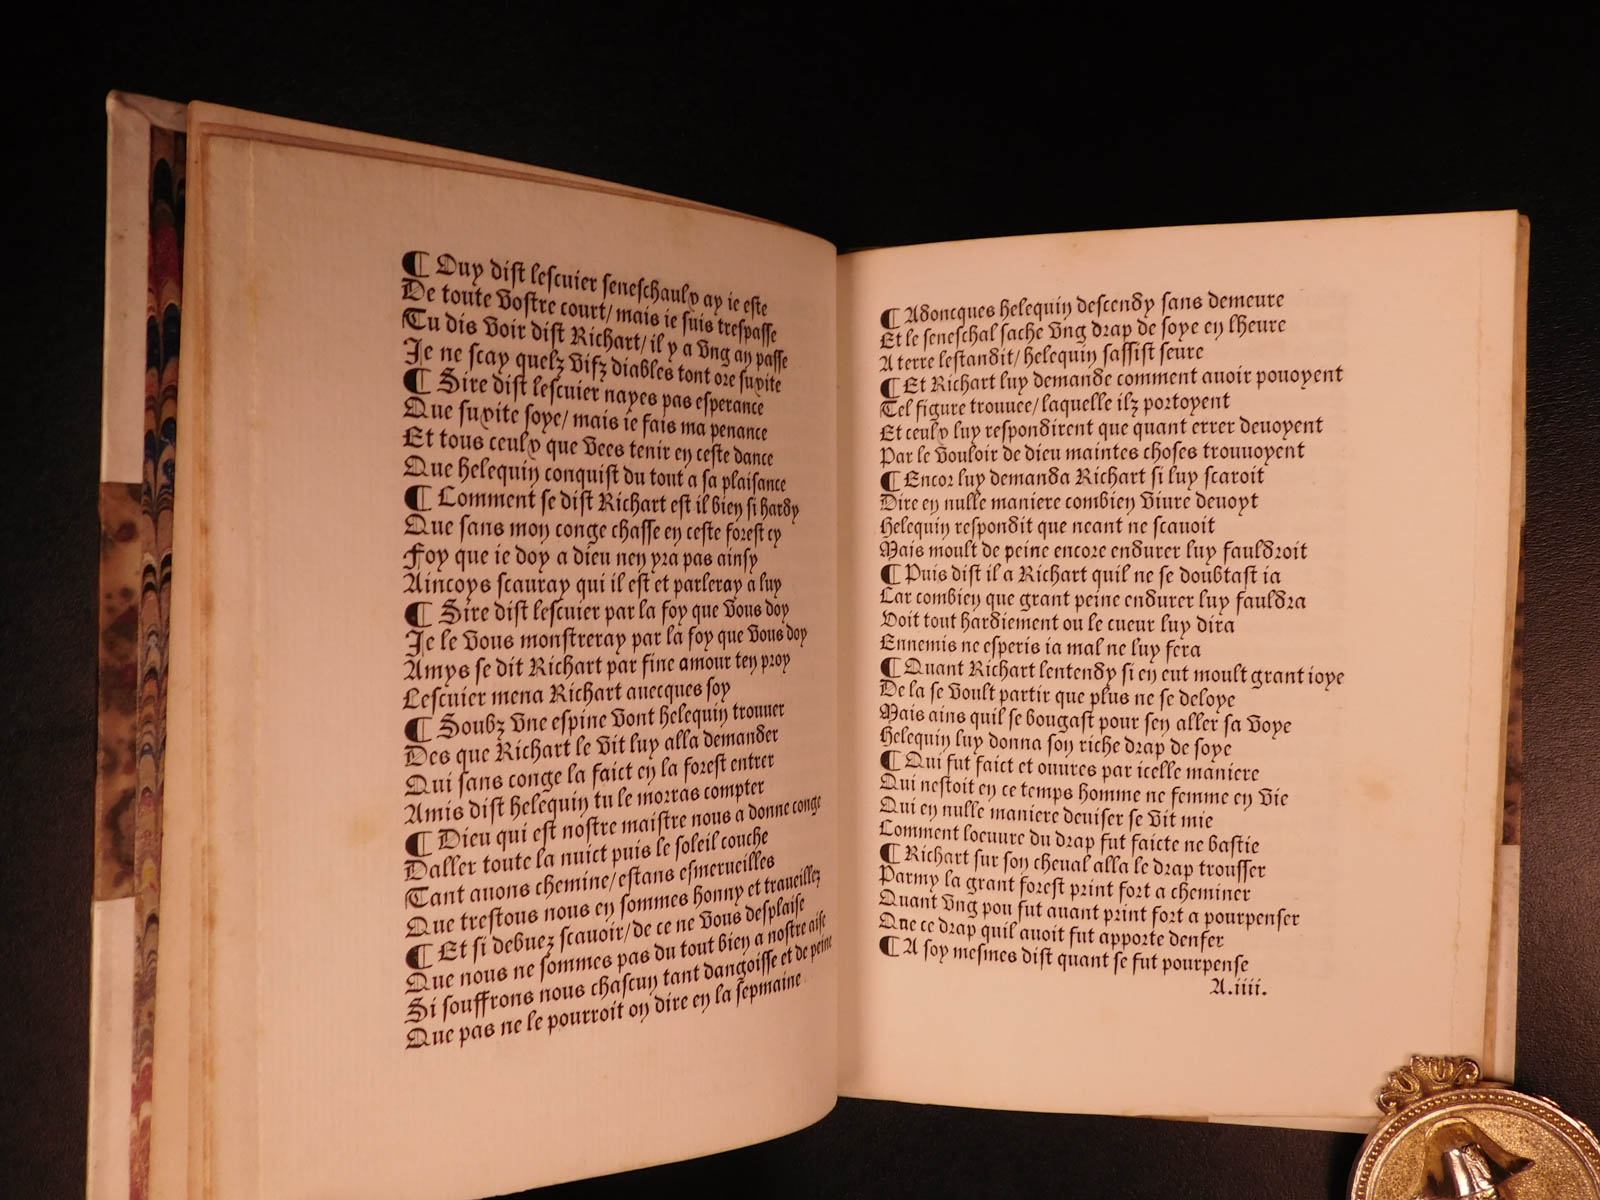 ¶ Ouy dist lescuier seneschaulx ay ie este
De toute vostre court/ mais ie suis trespasse
Tu dis voir dist Richart/ il y a ung an passe
Je ne scay quelz vifz diables tont ore suxite
¶ Sire dist lescuier nayes pas esperance
Que suxite soye/ mais ie fais ma penance
Et tous ceulx que vees tenir en ceste dance
Que helequin conquist du tout a sa plaisance
¶ Comment se dist Richart est il bien si hardy
Que sans mon conge chasse en ceste forest cy
Foy que ie doy a dieu nen yra pas ainsy
Aincoys scauray qui il est et parleray a luy
¶ Sire dist lescuier par la foy que vous doy
Je le vous monstreray par la foy que vous doy
Amys se dit Richart par fine amour ten proy
Lescuier mena Richart auecques soy
¶ Soubz une espine vont helequin trouuer
Des que Richart le vit luy alla demander
Qui sans conge la faict en la forest entrer
Amis dist helequin tu le morras compter
¶ Dieu qui est nostre maistre nous a donne conge
Daller toute la nuict puis le soleil couche
Tant auons chemine/ estans esmerueilles
Que trestous nous en sommes honny et traueillez
¶ Et si debuez scauoir/ de ce ne vous desplaise
Que nous ne sommes pas du tout bien a nostre aise
Si souffrons nous chascun tant dangoisse et de peine
Que pas ne le pourroit on dire en la sepmaine
¶ Adoncques helequin descendy sans demeure
Et le seneschal sache ung drap de soye en lheure
A terre lestandit/ helequin sassist seure
¶ Et Richart luy demande comment auoir pouoyent
Tel figure trouuee/ laquelle ilz portoyent
Et ceulx luy respondirent que quant errer deuoyent
Par le vouloir de dieu maintes choses trouuoyent
¶ Encor luy demanda Richart si luy scaroit
Dire en nulle maniere combien viure deuoyt
Helequin respondit que neant ne scauoit
Mais moult de peine encore endurer luy fauldroit
¶ Puis dist il a Richart quil ne se doubtast ia
Car combien que grant peine endurer luy fauldra
Voit tout hardiement ou le cueur luy dira
Ennemis ne esperis ia mal ne luy fera
¶ Quant Richart lentendy si en eut moult grant ioye
De la se voult partir que plus ne se deloye
Mais ains quil se bougast pour sen aller sa voye
Helequin luy donna son riche drap de soye
¶ Qui fut faict et ouures par icelle maniere
Qui nestoit en ce temps homme ne femme en vie
Qui en nulle maniere deuiser se vit mie
Comment loeuure du drap fut faicte ne bastie
¶ Richart sur son cheual alla le drap trousser
Parmy la grant forest print fort a cheminer
Quant ung pou fut auant print fort a pourpenser
Que ce drap quil auoit fut apporte denfer
¶ A soy mesmes dist quant se fut pourpense
A.iiii.